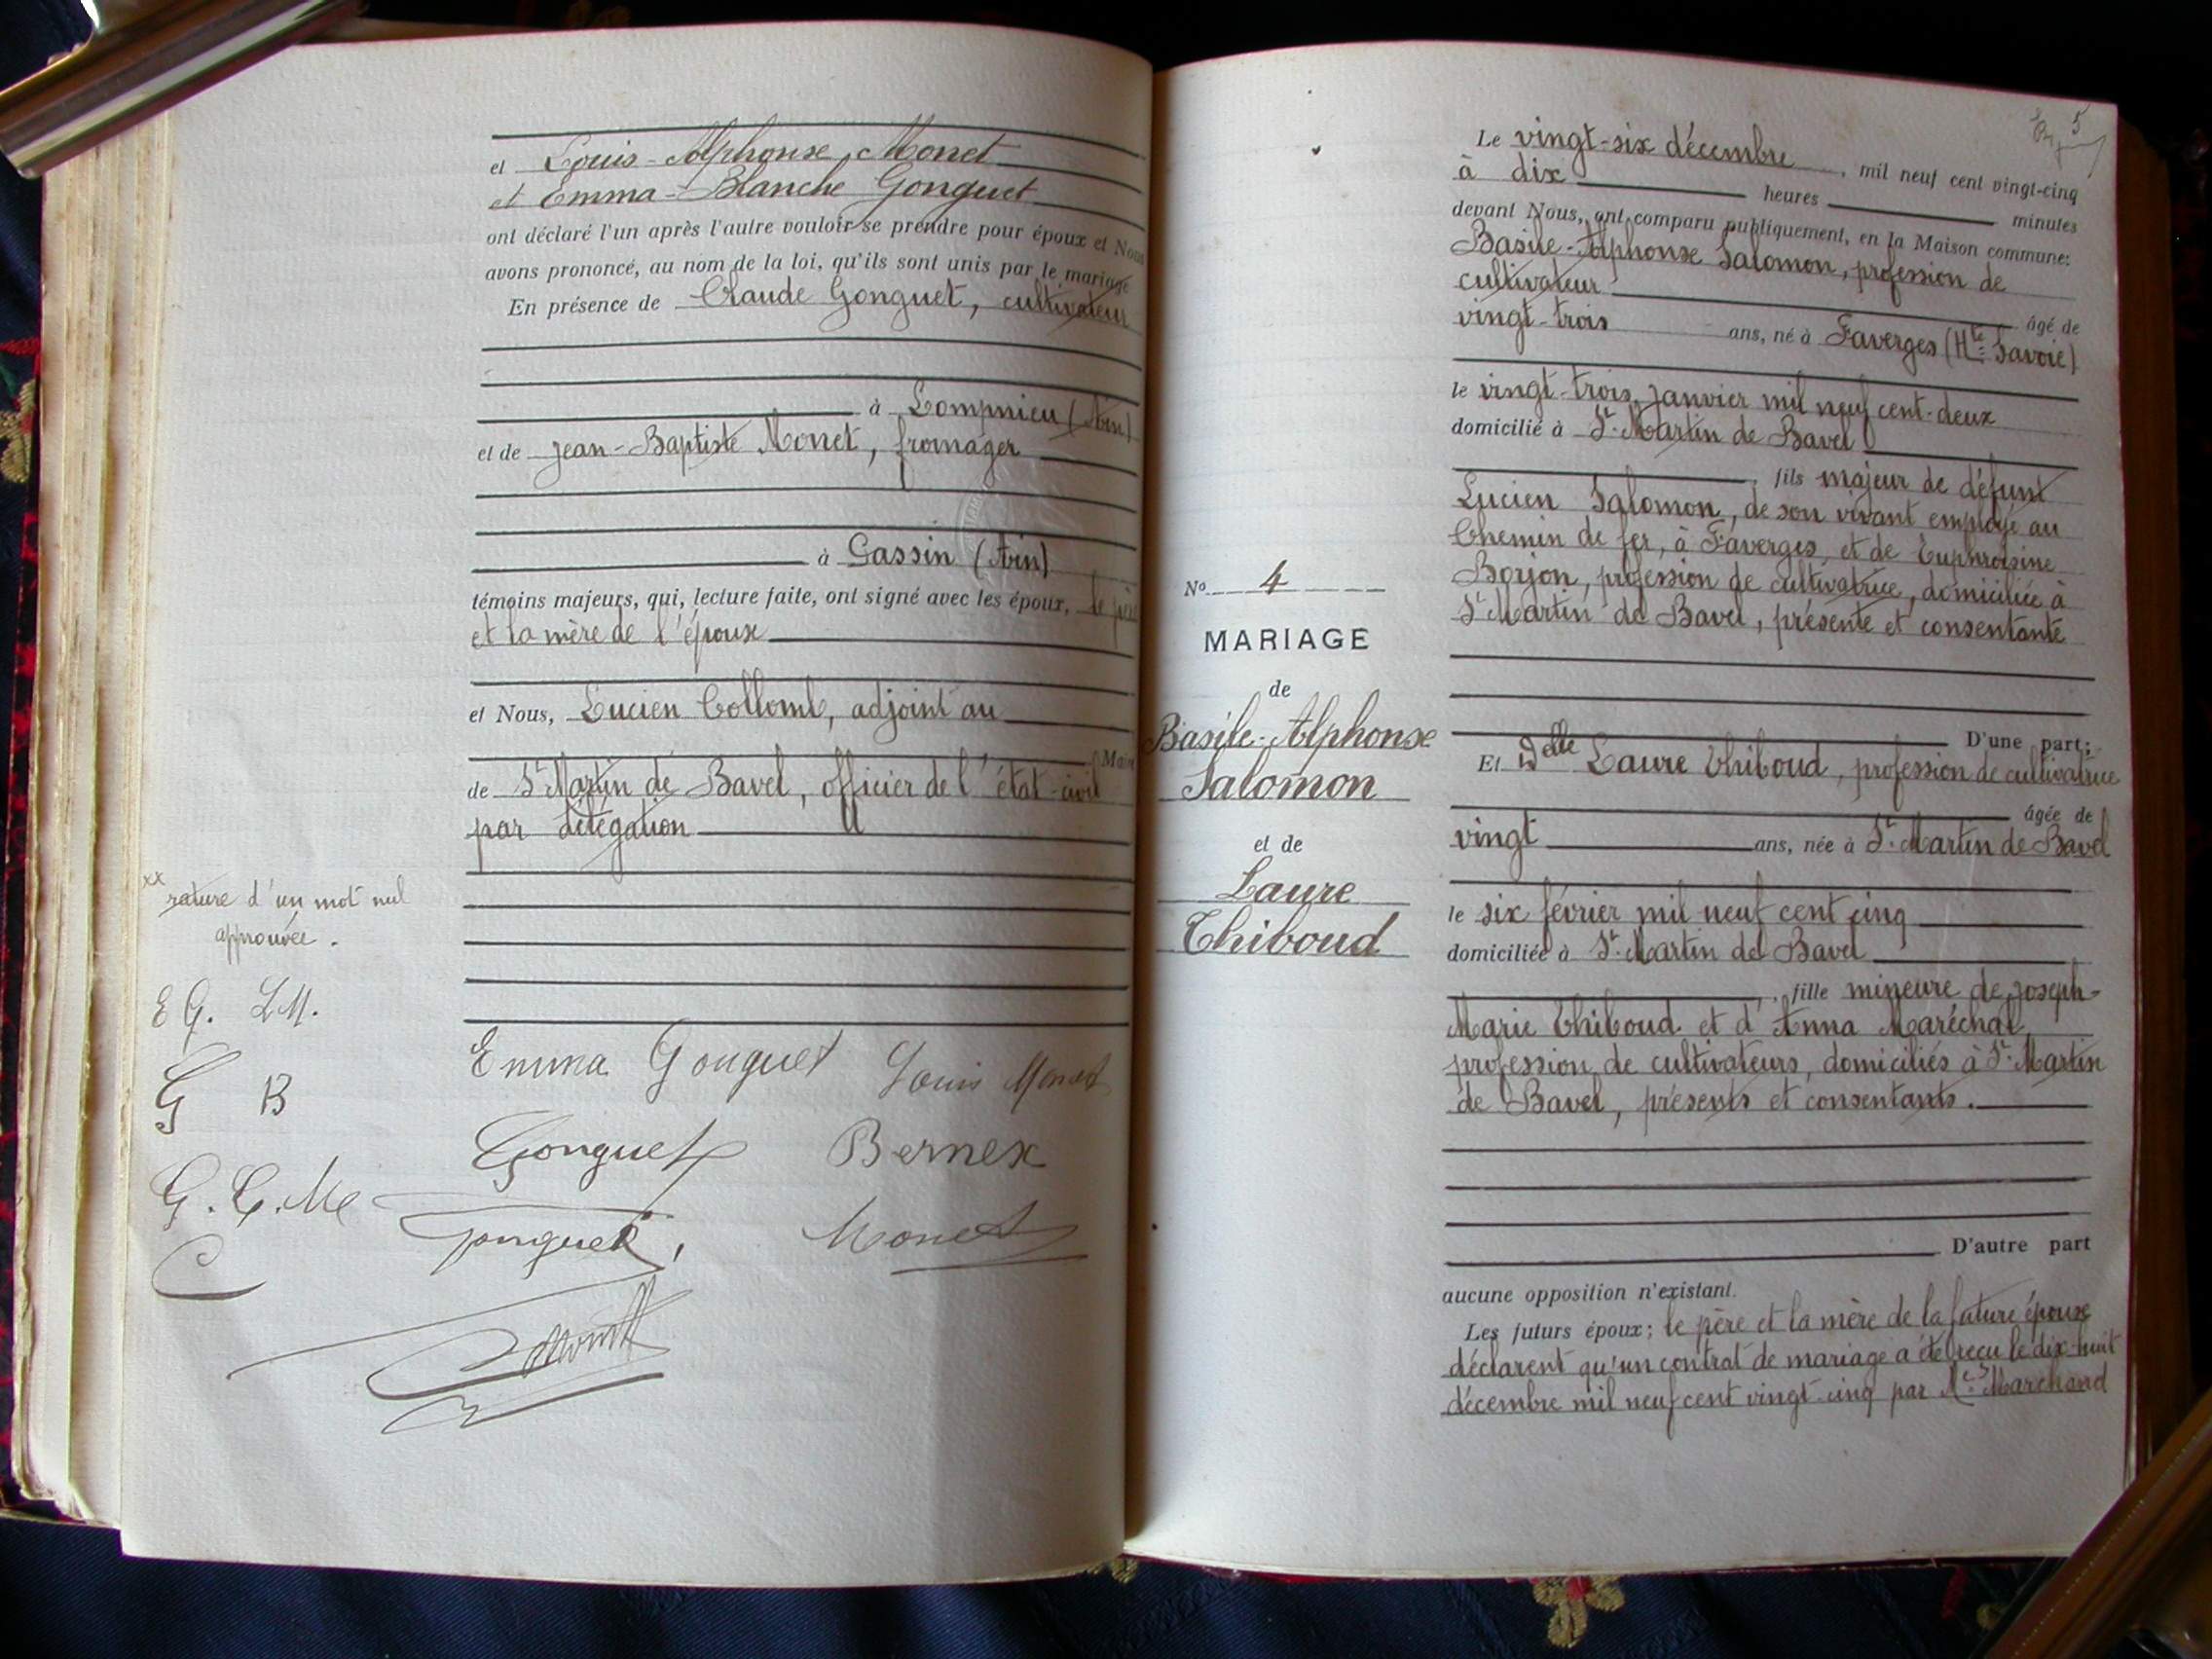 et Louis-Alphonse Monet
et Emma-Blanche Gonguet
ont déclaré l'un après l'autre vouloir se prendre pour époux et Nous
avons prononcé, au nom de la loi, qu'ils sont unis par le mariage
En présence de Claude Gonguet, cultivateur
à Lompnieu (Ain)
et de Jean-Baptiste Monet, fromager
à Gassin (Ain)
témoins majeurs, qui, lecture faite, ont signé avec les époux, le père
et la mère de l'époux
et Nous, Lucien Collomb, adjoint au
Maire
de St Martin de Bavel, officier de l'état-civil
par délégation
xx rature d'un mot nul
approuvée.
E G. L M.
G B
G. C. M
C
Emma Gonguet Louis Monet
Gonguet Bernex
Gonguet, Monet
5
No 4
MARIAGE
de
Basile-Alphonse
Salomon
et de
Laure
Thiboud
Le vingt-six décembre, mil neuf cent vingt-cinq
à dix heures minutes
devant Nous, ont comparu publiquement, en la Maison commune:
Basile-Alphonse Salomon, profession de
cultivateur
âgé de
vingt-trois ans, né à Faverges (Hte Savoie)
le vingt-trois janvier mil neuf cent-deux
domicilié à St Martin de Bavel
, fils majeur de défunt
Lucien Salomon, de son vivant employé au
Chemin de fer, à Faverges, et de Euphroisine
Borjon, profession de cultivatrice, domiciliée à
St Martin de Bavel, présente et consentante
D'une part;
Et Delle Laure Thiboud, profession de cultivatrice
âgée de
vingt ans, née à St Martin de Bavel
le six février mil neuf cent cinq
domiciliée à St Martin de Bavel
, fille mineure de Joseph-
Marie Thiboud et d'Anna Maréchal,
profession de cultivateurs, domiciliés à St Martin
de Bavel, présents et consentants.
D'autre part
aucune opposition n'existant.
Les futurs époux; le père et la mère de la future épouse
déclarent qu'un contrat de mariage a été reçu le dix-huit
décembre mil neuf cent vingt-cinq par Me Marchand